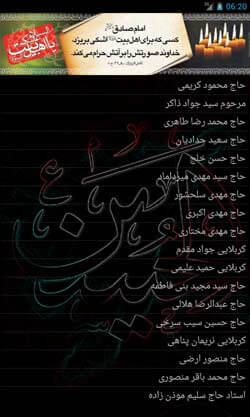 06:20
امام صادق
کسی که برای اهل بیت اشکی بریزد،
خداوند صورتش را بر آتش حرام می‌کند.
حاج محمود کریمی
مرحوم سید جواد ذاکر
حاج محمد رضا طاهری
حاج سعید حدادیان
حاج حسن خلج
حاج سید مهدی میرداماد
حاج مهدی سلحشور
حاج مهدی اکبری
حاج مهدی مختاری
کربلایی جواد مقدم
کربلایی حمید علیمی
حاج سید مجید بنی فاطمه
حاج عبدالرضا هلالی
حاج حسین سیب سرخی
کربلایی نریمان پناهی
حاج منصور ارضی
حاج محمد باقر منصوری
استاد حاج سلیم موذن زاده